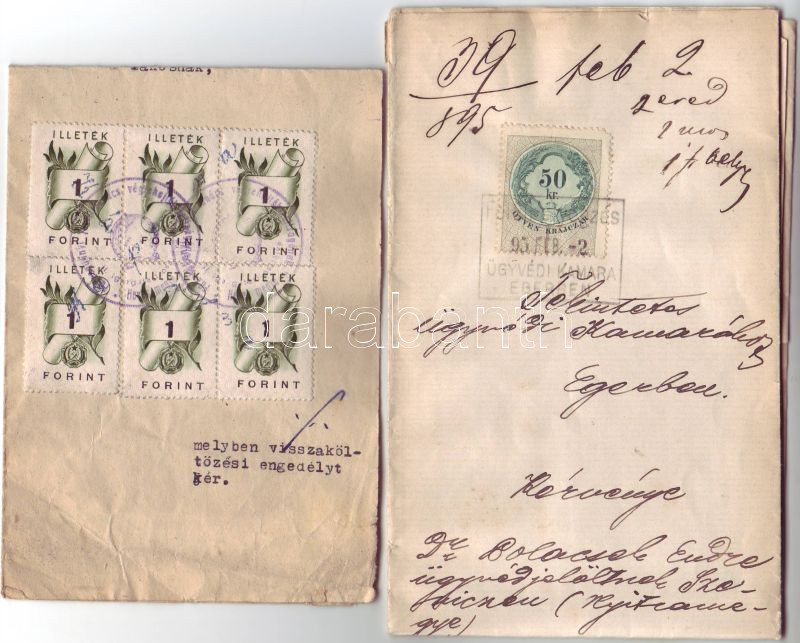 Tanácsnak,
ILLETÉK ILLETÉK ILLETÉK
1 1 1
FORINT FORINT FORINT
ILLETÉK ILLETÉK ILLETÉK
1 1 1
FORINT FORINT FORINT
melyben visszaköl-
tözési engedélyt
kér.
39 feb 2
895
2 ered
50
kr.
ÖTVEN KRAJCZÁR
95 FEB. -2
ÜGYVÉDI KAMARA
EGERBEN
Tekintetes
ügyvédi Kamarához
Egerben.
Kérvénye
Dr Bolacsek Endre
ügyvédjelöltnek Sze-
niczen (Nyitrame-
gye)
darabanth